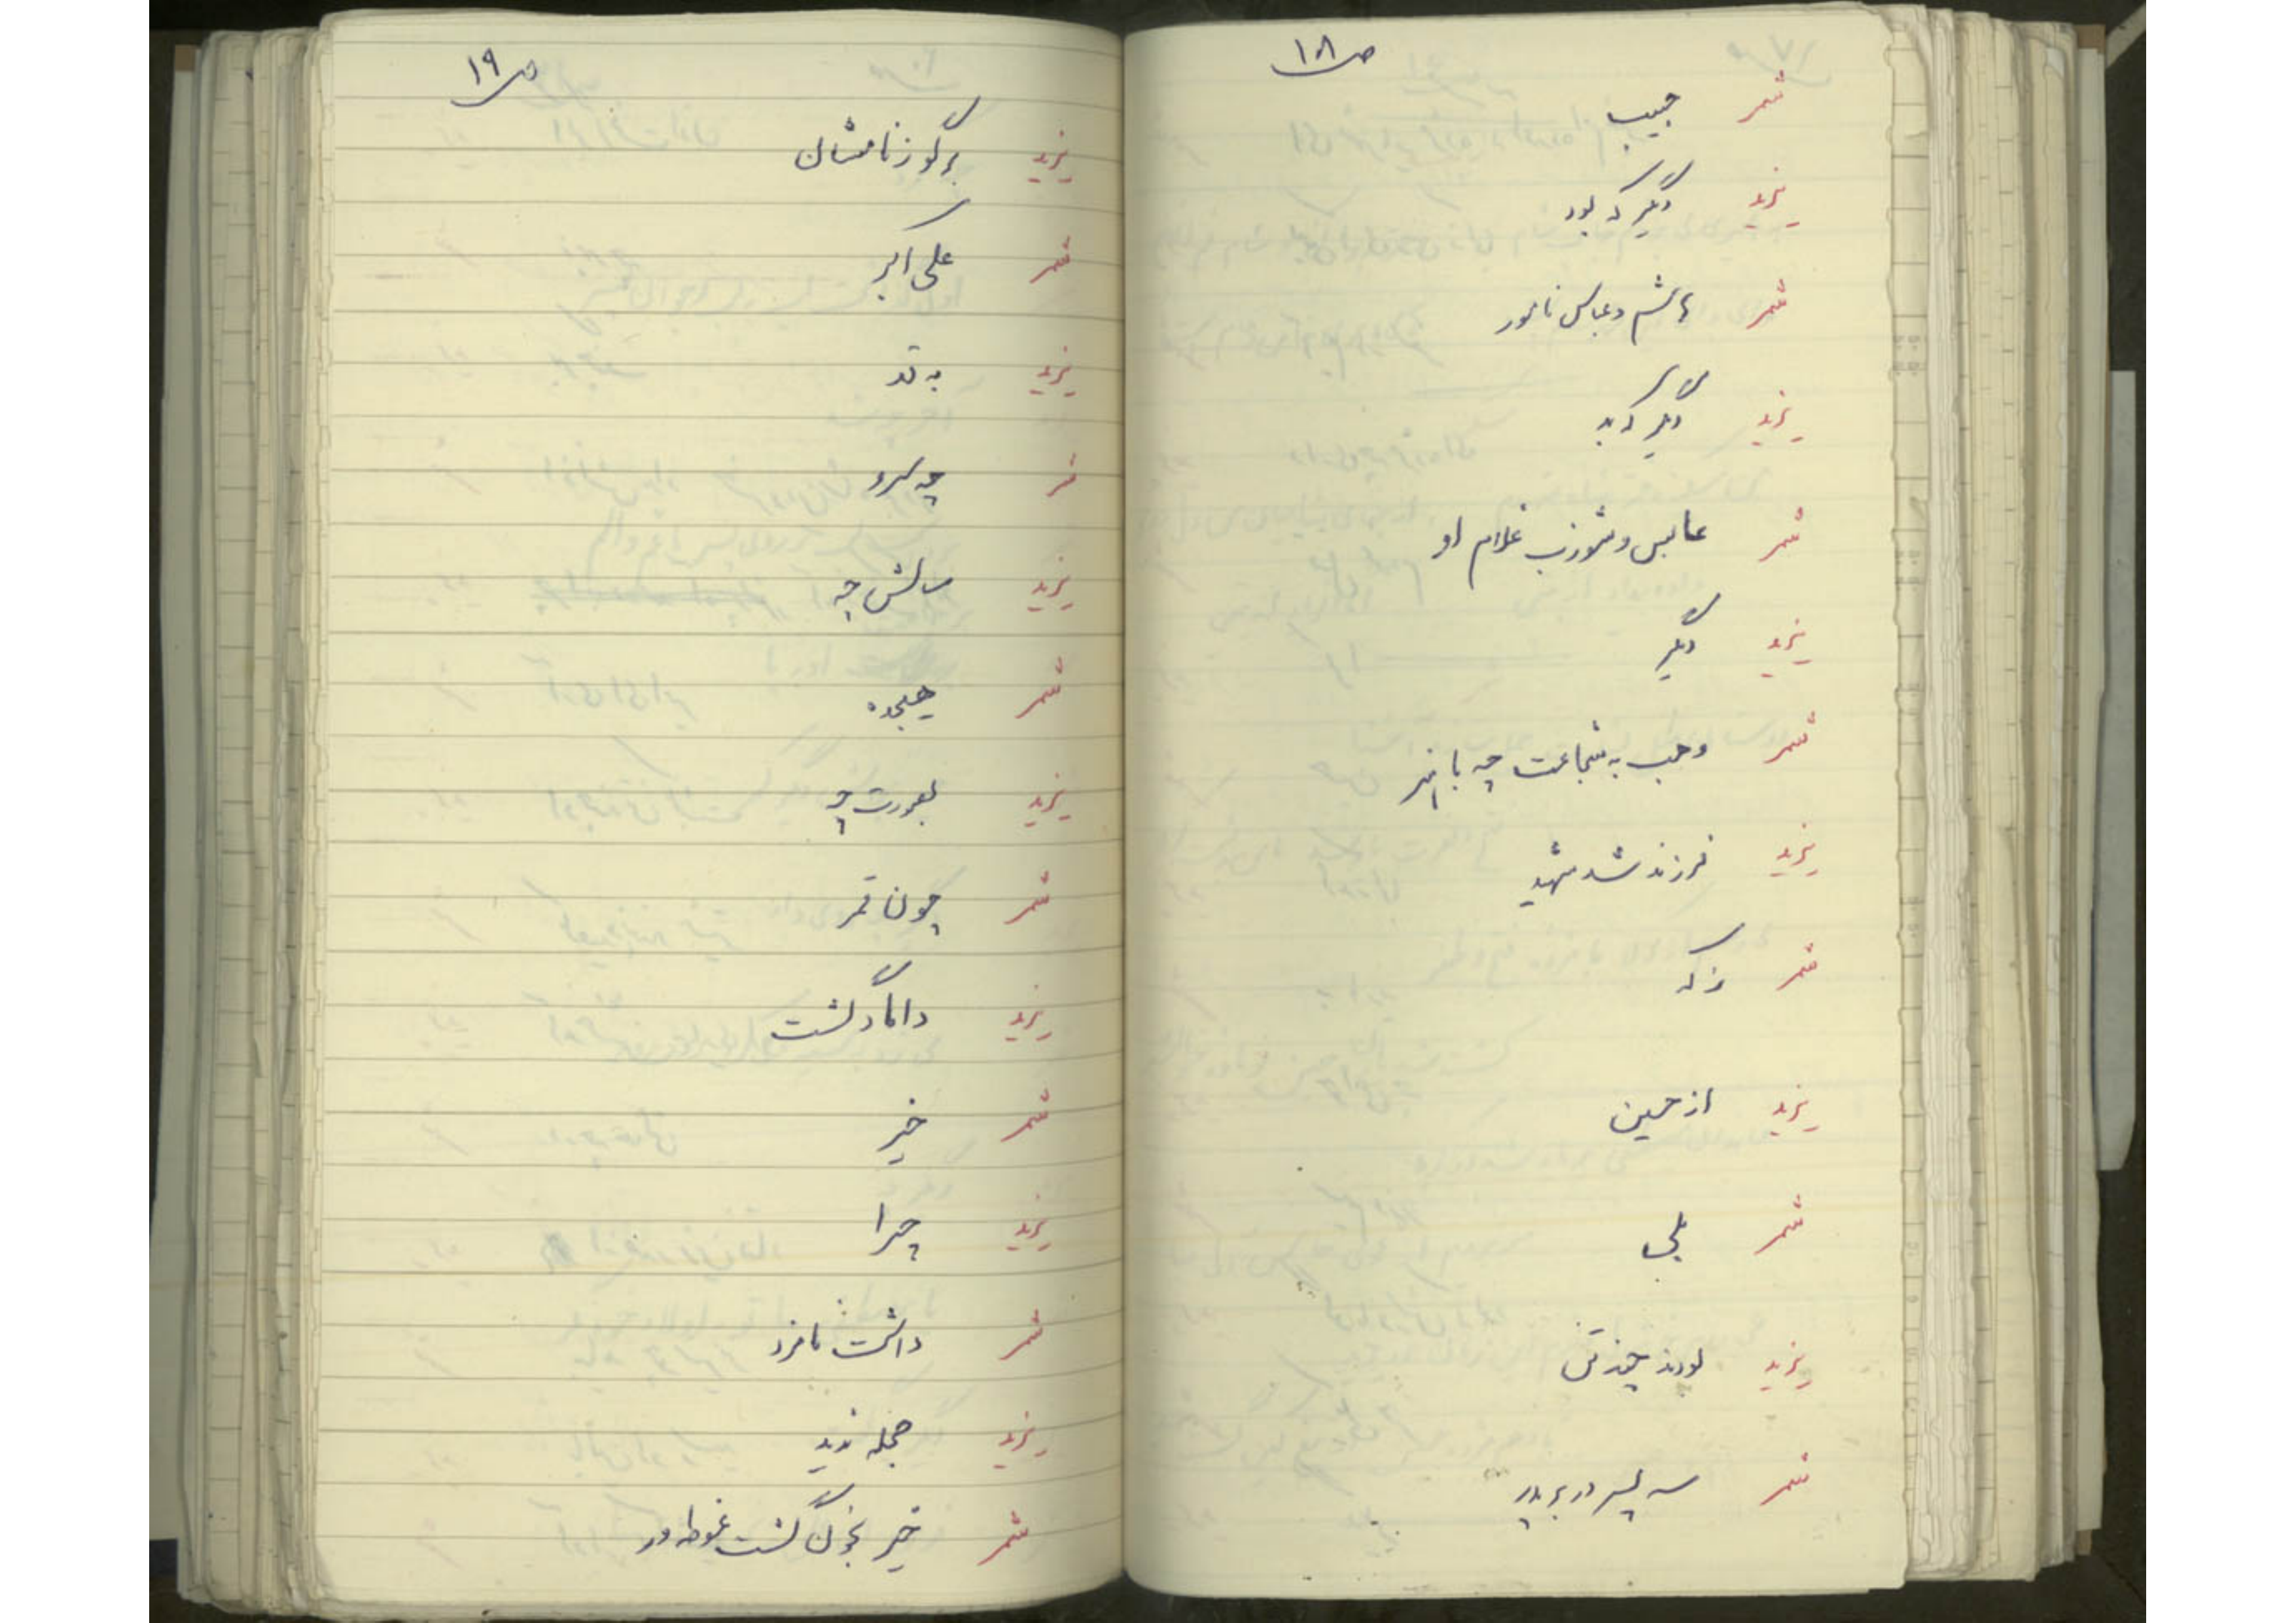 ص ۱۸
شمر حبیب
یزید دیگر که بود
شمر هاشم و عباس نامور
یزید دیگر که بد
شمر عابس و شوذب غلام او
یزید دیگر
شمر وهب به شجاعت چه با
یزید فرزند شد شهید
شمر ز که
یزید از حسین
شمر بلی
یزید بودند چند تن
شمر سه پسر در بر پدر
ص ۱۹
یزید برگو ز نامشان
شمر علی اکبر
یزید به قد
شمر چه سرو
یزید سالش چه
شمر هیجده
یزید بصورت چه
شمر چون قمر
یزید داماد گشت
شمر خیر
یزید چرا
شمر داشت نامزد
یزید حجله ندید
شمر خیر بخون گشت غوطه ور